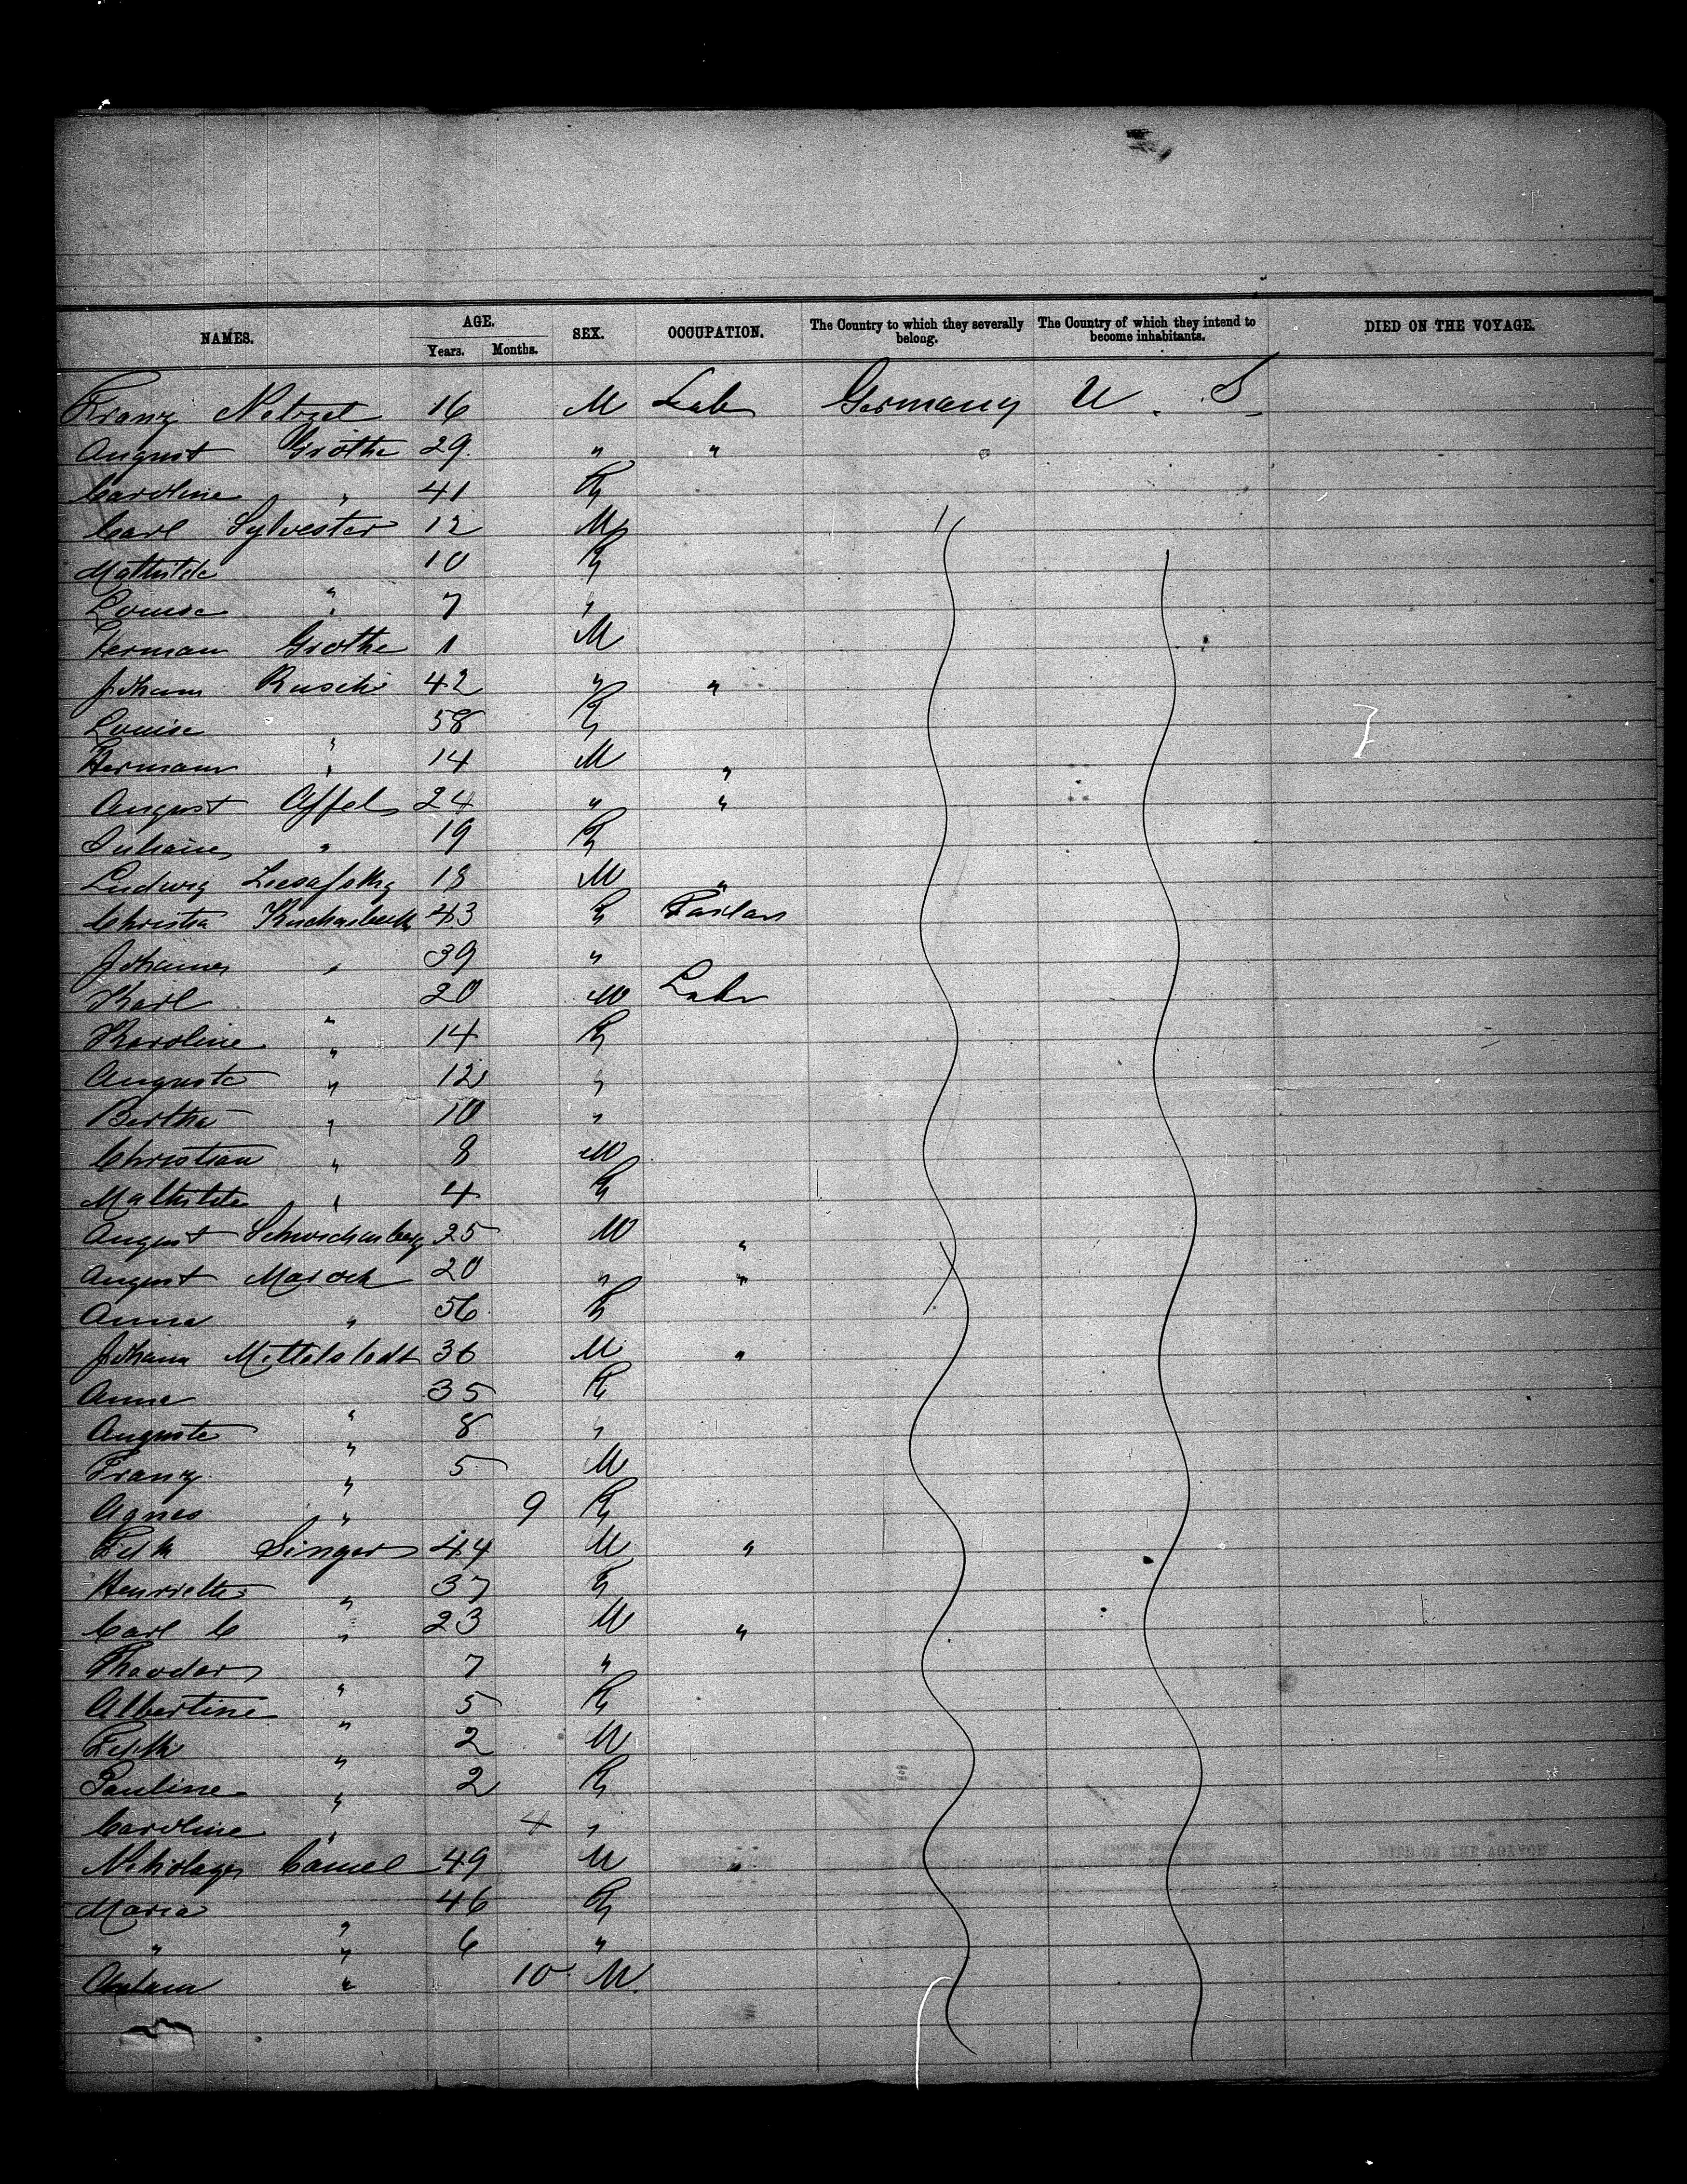 NAMES. AGE. SEX. OCCUPATION. The Country to which they severally belong. The Country of which they intend to become inhabitants. DIED ON THE VOYAGE.
Years. Months.
Franz Netzel 16 M Lab Germany U. S.
August Grothe 29 " "
Caroline " 41 F
Carl Sylvester 12 M
Mathilde " 10 F
Louise " 7 "
Herman Grothe 1 M
Johann Rusch 42 " "
Louise " 58 F
Hermann " 14 M "
August Affel 24 " "
Juliane " 19 F
Ludwig 18 M "
Christia 43 F
Johannes " 39 "
Karl " 20 M Lab
Karoline " 14 F
Auguste " 12 "
Bertha " 10 "
Christian " 8 M
Mathilde " 4 F
August 25 M "
August Maroch 20 " "
Anna " 56 F
Johann Mittelstedt 36 M "
Anna " 35 F
Auguste " 8 "
Franz " 5 M
Agnes " 9 F
Singer 44 M "
Henriette " 37 F
Carl C " 23 M "
Theodor " 7 "
Albertine " 5 F
" 2 M
Pauline " 2 F
Caroline " 4 "
49 M "
Maria " 46 F
" " 6 "
" 10 M